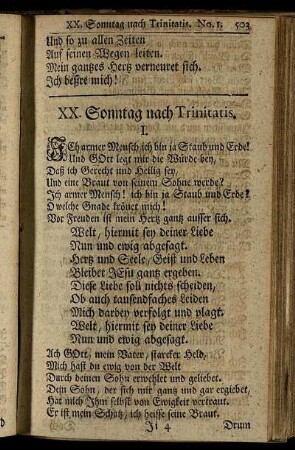 XX. Sonntag nach Trinitatis. No. 1. 503
Und so zu allen Zeiten
Auf seinen Wegen leiten.
Mein gantzes Hertz verneuret sich.
Ich beßre mich!
XX. Sonntag nach Trinitatis.
I.
ICh armer Mensch, ich bin ja Staub und Erde!
Und GOtt legt mir die Würde bey,
Deß ich Gerecht und Heilig sey,
Und eine Braut von seinem Sohne werde?
Ich armer Mensch! ich bin ja Staub und Erde?
O welche Gnade krönet mich!
Vor Freuden ist mein Hertz gantz ausser sich.
Welt, hiermit sey deiner Liebe
Nun und ewig abgesagt.
Hertz und Seele, Geist und Leben
Bleibet JEsu gantz ergeben.
Diese Liebe soll nichts scheiden,
Ob auch tausendfaches Leiden
Mich darbey verfolgt und plagt.
Welt, hiermit sey deiner Liebe
Nun und ewig abgesagt.
Ach GOtt, mein Vater, starcker Held,
Mich hast du ewig von der Welt
Durch deinen Sohn erwehlet und geliebet.
Dein Sohn, der sich mir gantz und gar ergiebet,
Hat mich Ihm selbst von Ewigkeit vertraut.
Er ist mein Schatz, ich heisse seine Braut.
Ii 4 Drum